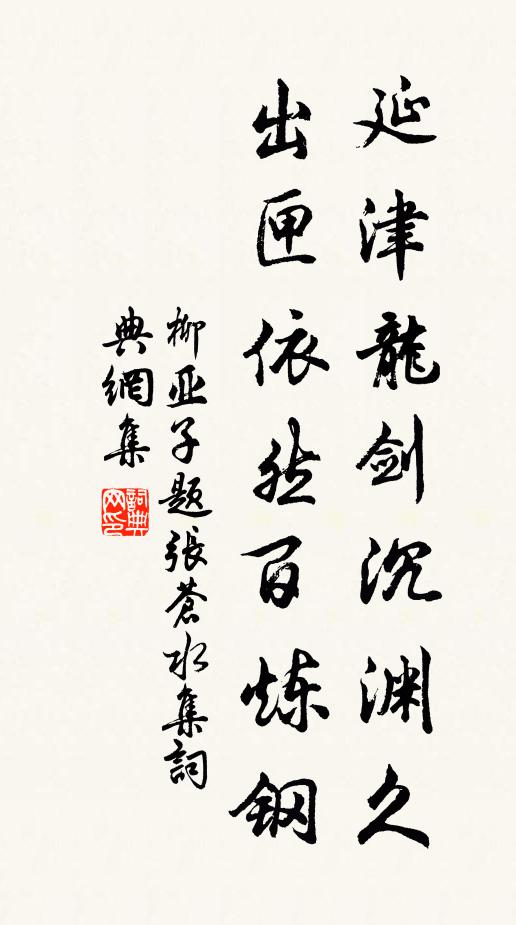 延津龍劍沉渊久
出匣依然百炼钢
柳亚子题張蒼水集詞
典網集
詞典
网印